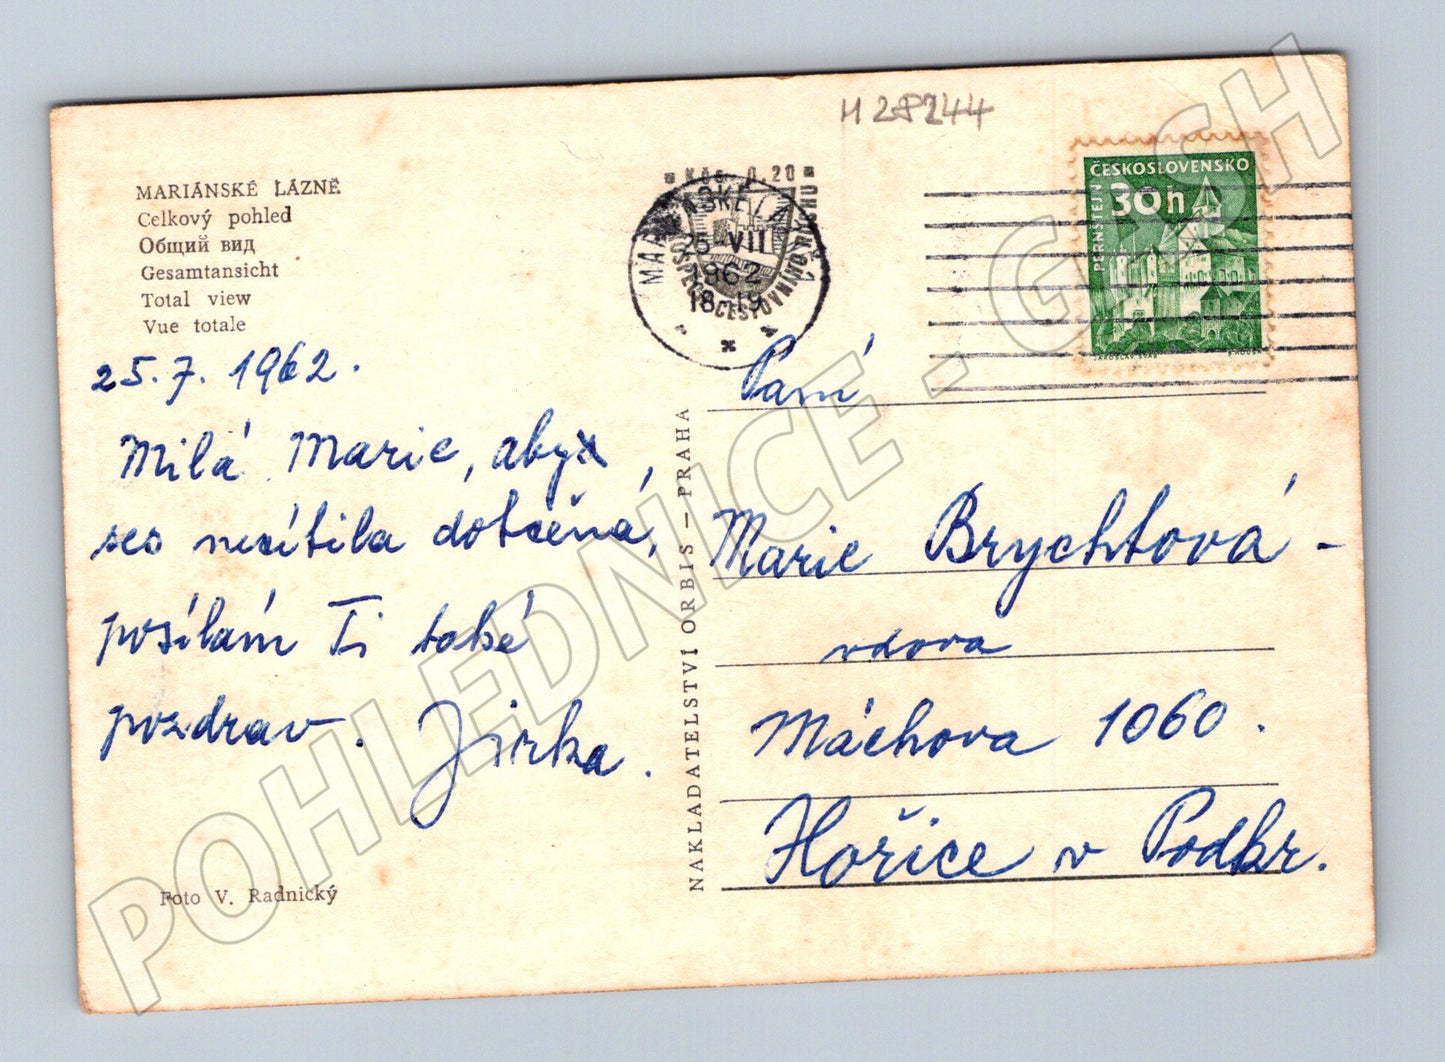 M 28244
MARIÁNSKÉ LÁZNĚ
Celkový pohled
Общий вид
Gesamtansicht
Total view
Vue totale
25. 7. 1962.
Milá Marie, abys
ses necítila dotčená,
posílám Ti také
pozdrav. Jirka.
Foto V. Radnický
NAKLADATELSTVÍ ORBIS – PRAHA
Kčs 0.20
VE PROSPĚCH CESTOVNÍHO RUCHU
MARIÁNSKÉ LÁZNĚ 1
25 VII
1962
18-19
ČESKOSLOVENSKO
30h
PERNŠTEJN
JAROSLAV
Paní
Marie Brychtová -
vdova
Máchova 1060.
Hořice v Podkr.
POHLEDNICE - G - SH